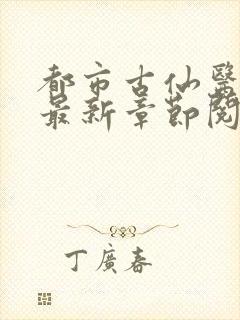 都市古仙醫
最新章節閱
丁廣春